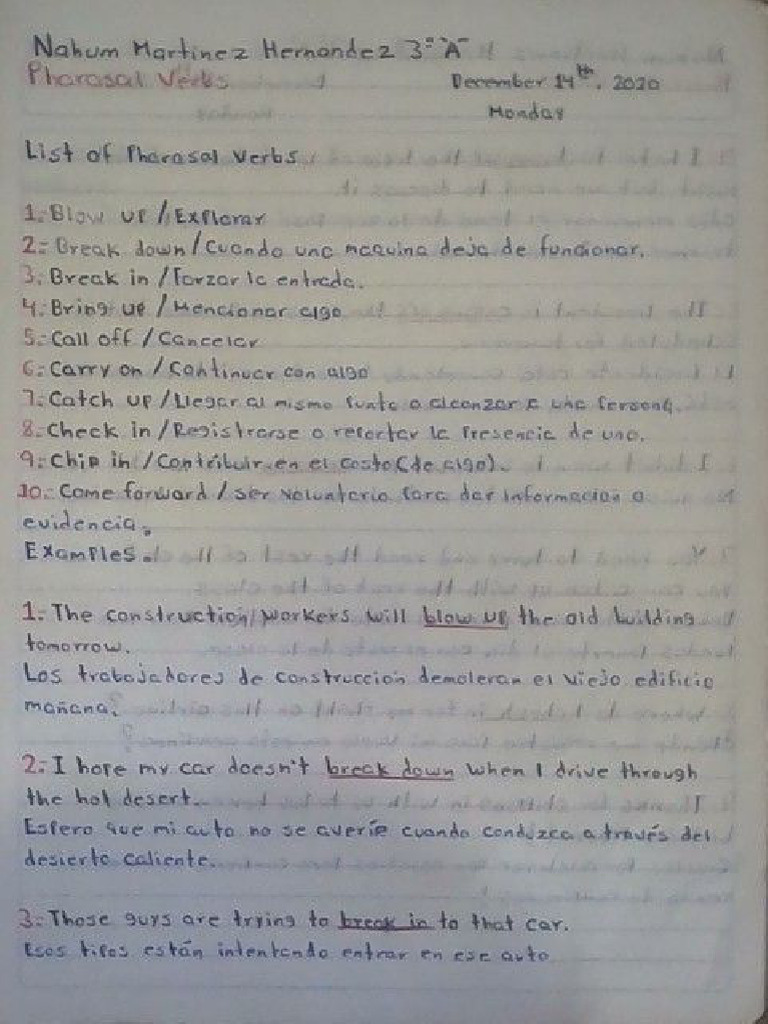 Nahum Martinez Hernandez 3°"A"
Pharasal Verbs December 14th, 2020
Monday
List of Pharasal Verbs.
1. Blow up / Explorar
2. Break down / Cuando una maquina deja de funcionar.
3. Break in / Forzar la entrada.
4. Bring up / Mencionar algo
5. Call off / Cancelar
6. Carry on / Continuar con algo
7. Catch up / Llegar al mismo punto o alcanzar a una persona.
8. Check in / Registrarse o reportar la presencia de uno.
9. Chip in / Contribuir en el costo (de algo).
10. Come forward / ser voluntario para dar informacion o
evidencia.
Examples.
1. The construction workers will blow up the old building
tomorrow.
Los trabajadores de construccion demoleran el viejo edificio
mañana.
2. I hope my car doesn't break down when I drive through
the hot desert.
Espero que mi auto no se averíe cuando conduzca a través del
desierto caliente.
3. Those guys are trying to break in to that car.
Esos tipos están intentando entrar en ese auto